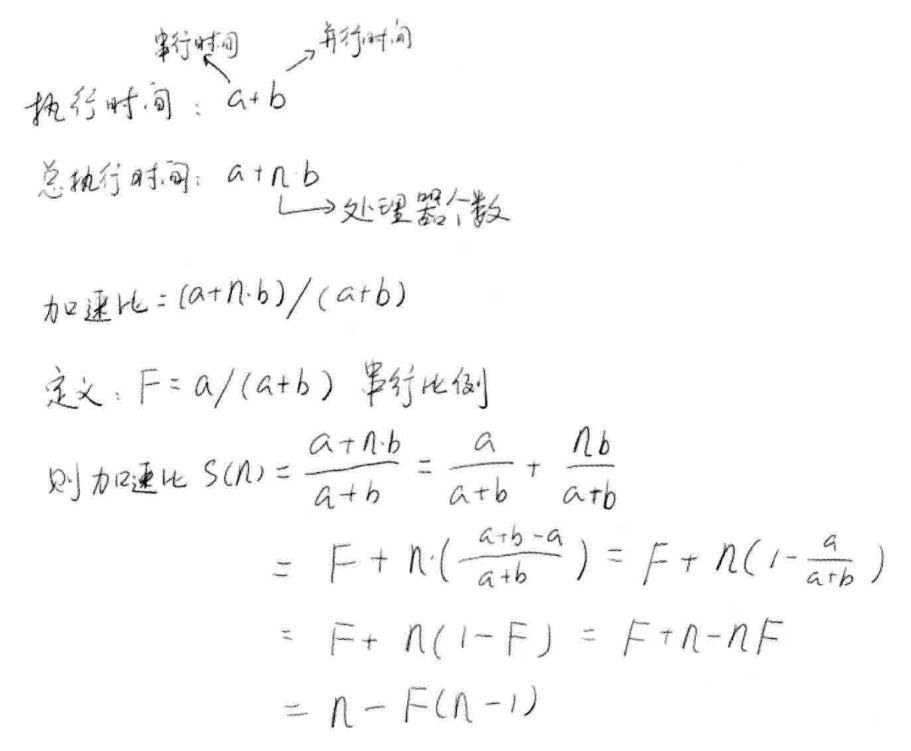 串行时间 并行时间
执行时间：a+b
总执行时间：a+n·b
处理器个数
加速比=(a+n·b)/(a+b)
定义：F=a/(a+b) 串行比例
则加速比 S(n) = \frac{a+n·b}{a+b} = \frac{a}{a+b} + \frac{nb}{a+b}
= F + n·(\frac{a+b-a}{a+b}) = F + n(1-\frac{a}{a+b})
= F + n(1-F) = F+n-nF
= n-F(n-1)